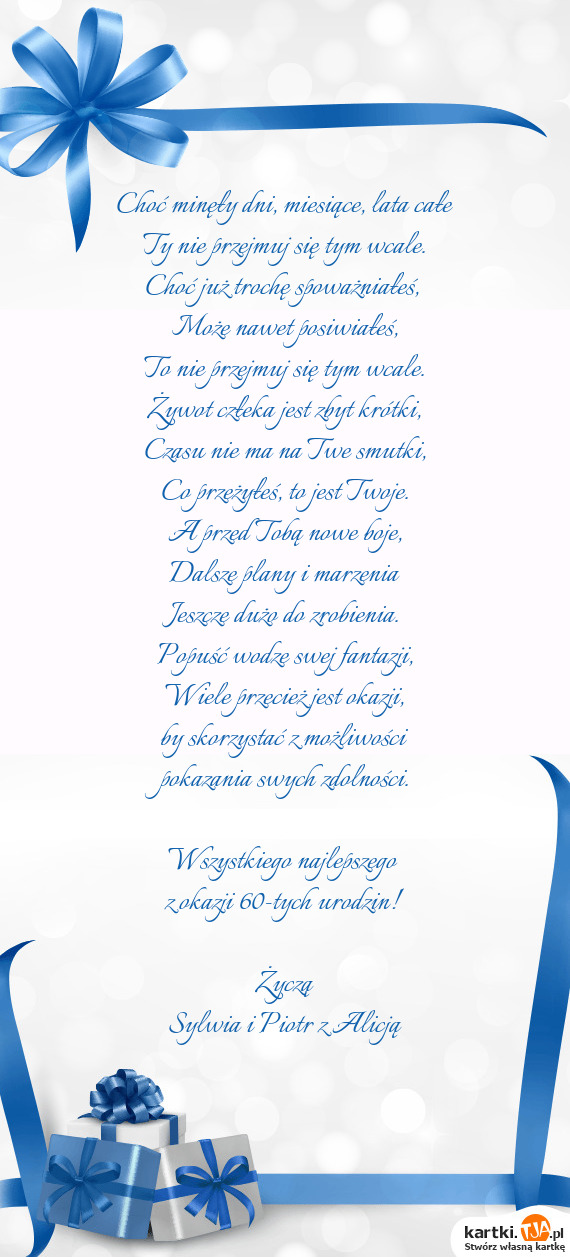 Choć minęły dni, miesiące, lata całe
Ty nie przejmuj się tym wcale.
Choć już trochę spoważniałeś,
Może nawet posiwiałeś,
To nie przejmuj się tym wcale.
Żywot człeka jest zbyt krótki,
Czasu nie ma na Twe smutki,
Co przeżyłeś, to jest Twoje.
A przed Tobą nowe boje,
Dalsze plany i marzenia
Jeszcze dużo do zrobienia.
Popuść wodze swej fantazji,
Wiele przecież jest okazji,
by skorzystać z możliwości
pokazania swych zdolności.
Wszystkiego najlepszego
z okazji 60-tych urodzin!
Życzą
Sylwia i Piotr z Alicją
kartki.TJA.pl
Stwórz własną kartkę